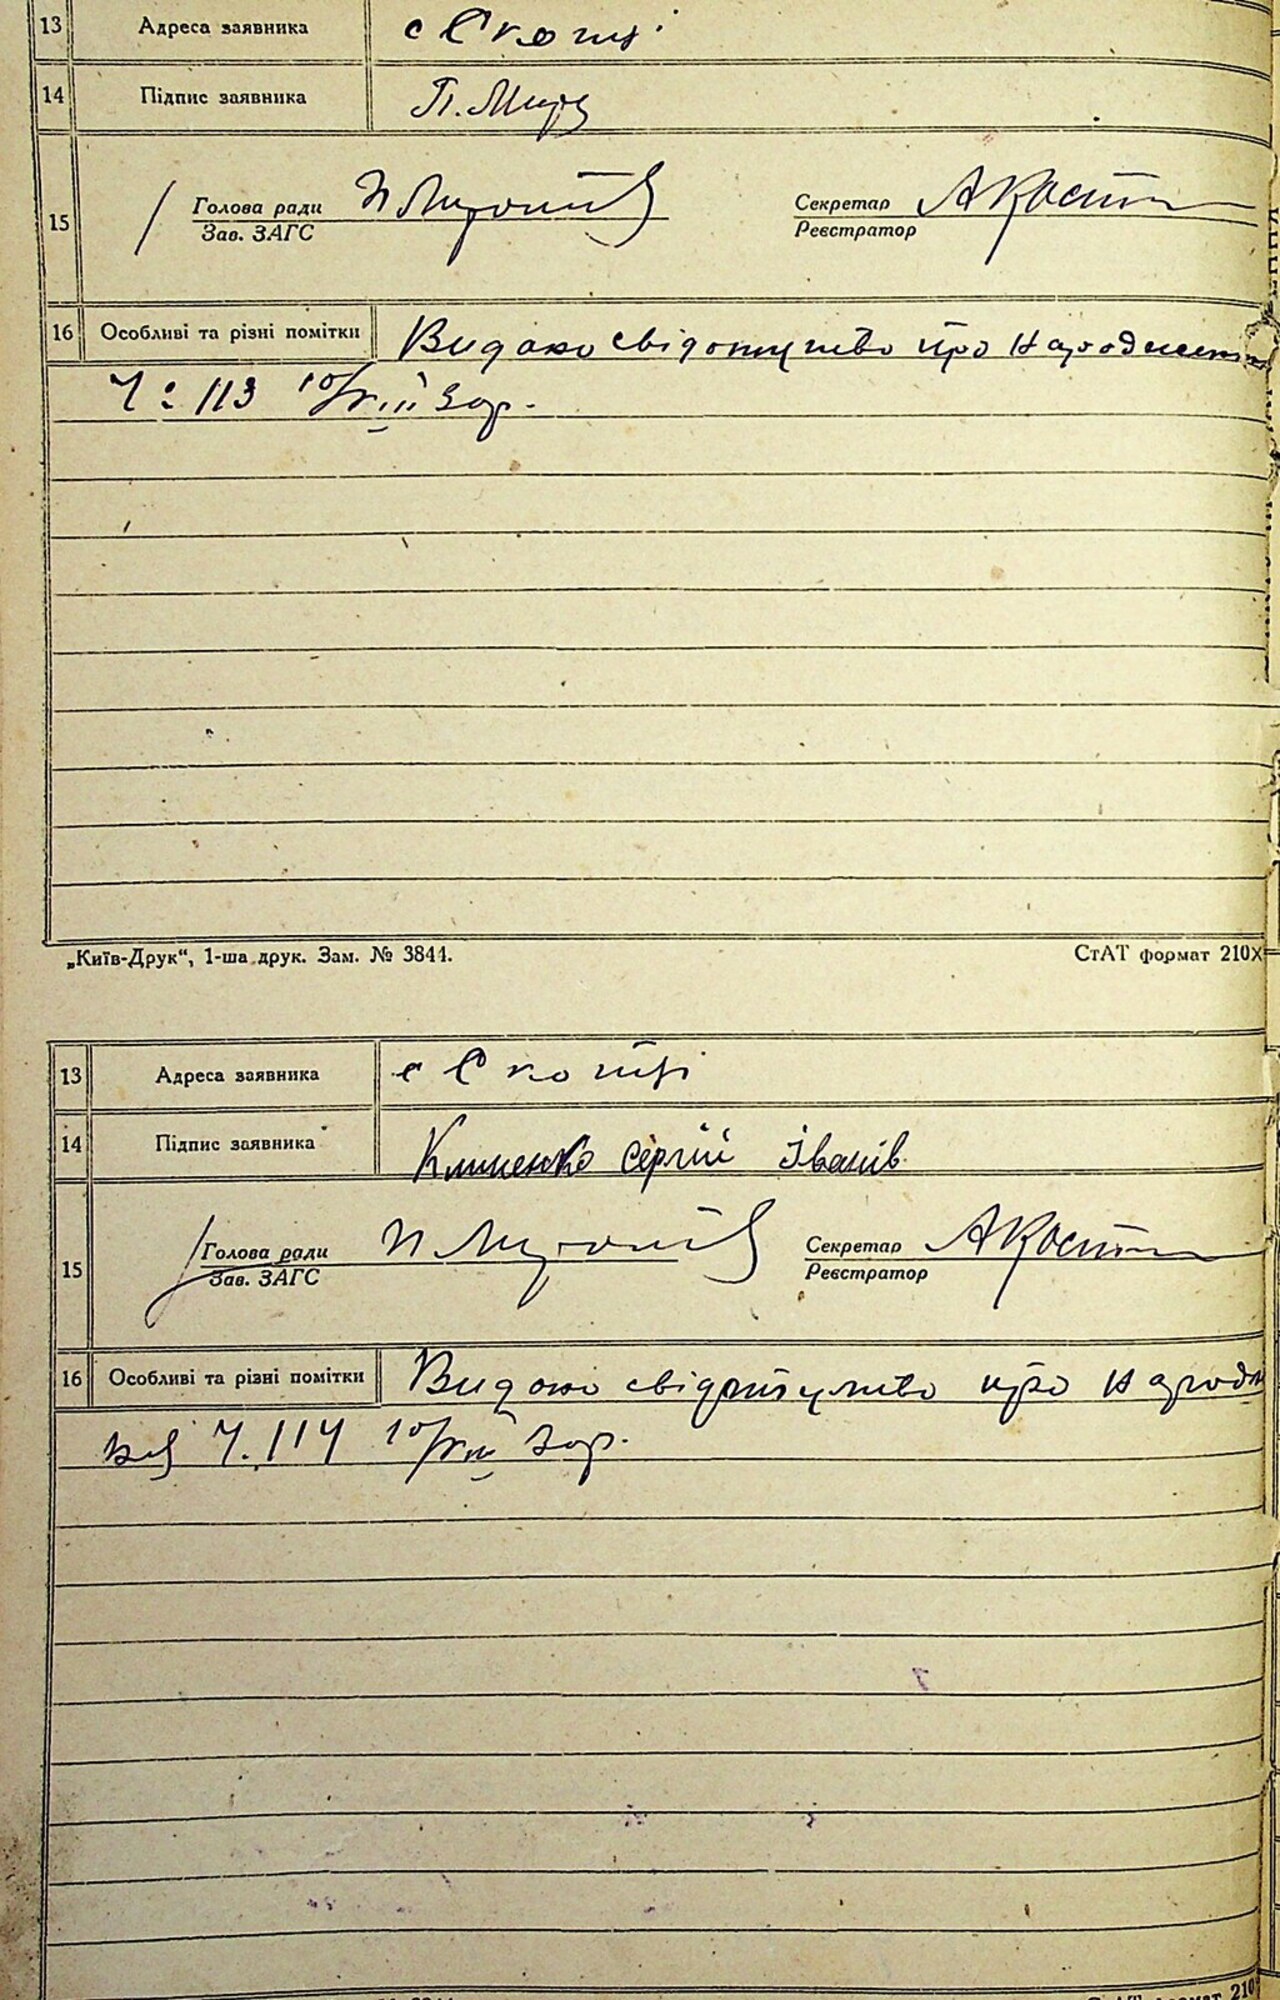 13 Адреса заявника с Скопці
14 Підпис заявника П.
15 Голова ради Секретар АКост
Зав. ЗАГС Реєстратор
16 Особливі та різні помітки Видано свідоцтво про народження
Ч: 113 10/VIII 30р.
„Київ-Друк“, 1-ша друк. Зам. № 3844. СтАТ формат 210х
13 Адреса заявника с Скопці
14 Підпис заявника Клименко Сергій Іванів
15 Голова ради Секретар АКост
Зав. ЗАГС Реєстратор
16 Особливі та різні помітки Видано свідоцтво про народж
Ч. 114 10/VIII 30р.
формат 210